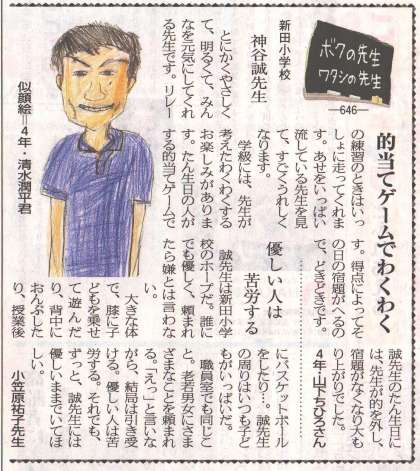 ボクの先生
ワタシの先生
—646—
新田小学校
神谷誠先生
的当てゲームでわくわく
とにかくやさしく
て、明るくて、みん
なを元気にしてくれ
る先生です。リレー
の練習のときはいっ
しょに走ってくれま
す。あせをいっぱい
流している先生を見
て、すごくうれしく
なります。
学級には、先生が
考えたわくわくする
お楽しみがありま
す。たん生日の人が
する的当てゲームで
す。得点によってそ
の日の宿題がへるの
で、どきどきです。
先生のたん生日に
は、先生が的を外し、
宿題がなくなり大も
り上がりでした。
4年・山下ちひろさん
優しい人は
苦労する
誠先生は新田小学
校のホープだ。誰に
でも優しく、頼まれ
たら嫌とは言わな
い。
大きな体
で、膝に子
どもを乗せ
て遊んだ
り、背中に
おんぶした
り、授業後
にバスケットボール
をしたり…。誠先生
の周りはいつも子ど
もがいっぱいだ。
職員室でも同じこ
と。老若男女にさま
ざまなことを頼まれ
る。「えっ」と言いな
がら、結局は引き受
ける。優しい人は苦
労する。それでも、
ずっと、誠先生には
優しいままでいてほ
しい。
小笠原祐子先生
似顔絵＝4年・清水潤平君